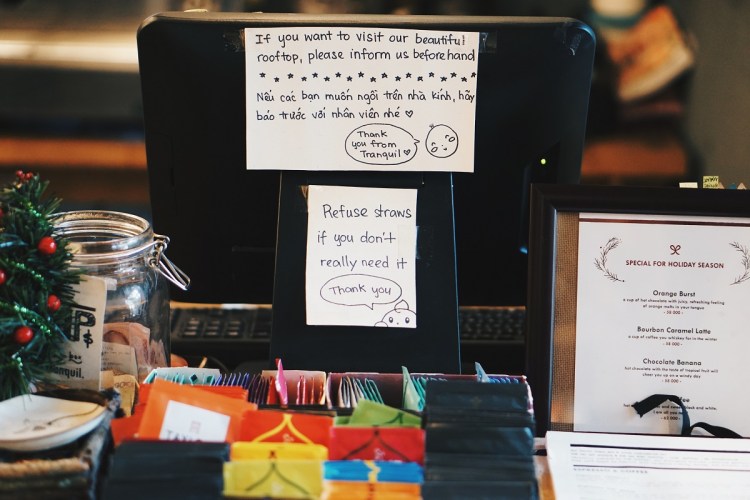 If you want to visit our beautiful
rooftop, please inform us beforehand
Nếu các bạn muốn ngồi trên nhà kính, hãy
báo trước với nhân viên nhé ♡
Thank
you from
Tranquil ♡
Refuse straws
if you don't
really need it
Thank you
SPECIAL FOR HOLIDAY SEASON
Orange Burst
a cup of hot chocolate with juicy, refreshing feeling
of orange melts in your tongue
- 58 000 -
Bourbon Caramel Latte
a cup of coffee you whisker for in the winter
- 58 000 -
Chocolate Banana
hot chocolate with the taste of tropical fruit will
cheer you up on a windy day